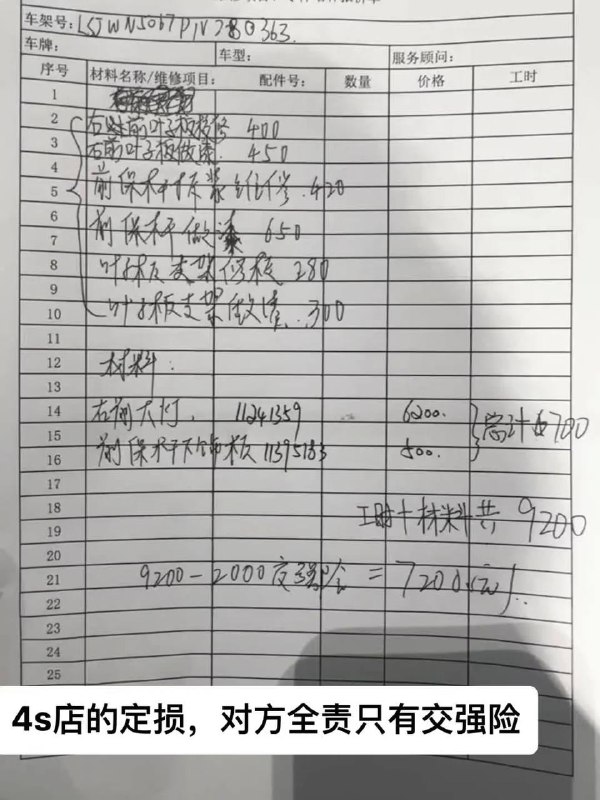 车架号: LSJWN5067P1V280363.
车牌: 车型: 服务顾问:
序号 材料名称/维修项目: 配件号: 数量 价格 工时
1
2 右前叶子板校修 400
3 右前叶子板做漆 450
4
5 前保杆拆装维修 420
6
7 前保杆做漆 650
8 叶板支架修校 280
9
10 叶子板支架做漆 300
11
12 材料:
13
14 右前大灯. 11241359 6200.
15 总计6700
16 前保杆下饰板 11395183 500.
17
18 工时+材料共 9200
19
20
21 9200-2000交强险 = 7200.(元)
22
23
24
25
4s店的定损，对方全责只有交强险